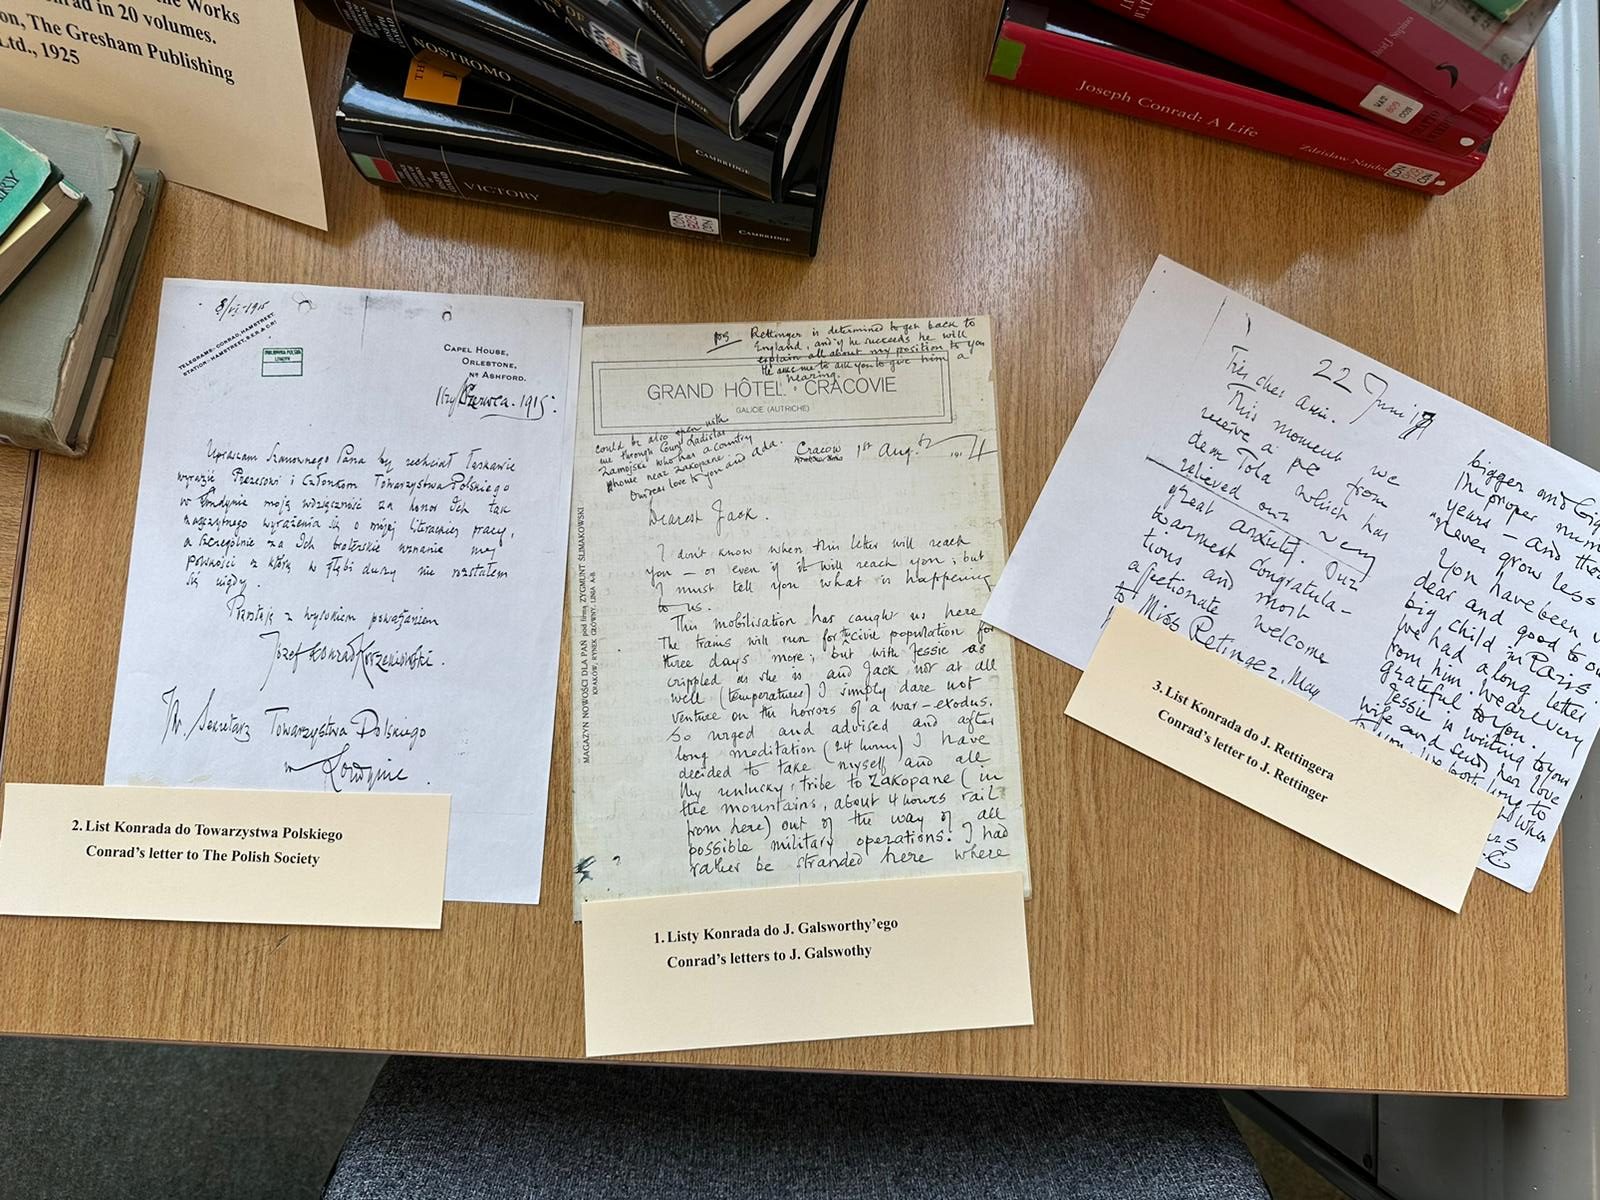 the Works
nrad in 20 volumes.
on, The Gresham Publishing
Ltd., 1925
NOSTROMO
CAMBRIDGE
VICTORY
CAMBRIDGE
Joseph Conrad: A Life
Zdzisław Najder
8/VI-1915
TELEGRAMS:-CONRAD, HAMSTREET.
STATION:-HAMSTREET, S.E.R. & C.R.
CAPEL HOUSE,
ORLESTONE,
NR ASHFORD.
Czerwca. 1915.
Upraszam Szanownego Pana by zechciał łaskawie
wyrazić Prezesowi i Członkom Towarzystwa Polskiego
w Londynie moją wdzięczność za honor Ich tak
zaszczytnego wyrażenia się o mojej literackiej pracy,
a szczególnie za Ich braterskie uznanie mej
polskości z którą w głębi duszy nie rozstałem
się nigdy.
Pozostaję z wysokiem poważaniem
Józef Konrad Korzeniowski.
Sekretarz Towarzystwa Polskiego
w Londynie.
2. List Konrada do Towarzystwa Polskiego
Conrad's letter to The Polish Society
PS Rettinger is determined to get back to
England, and if he succeeds he will
explain all about my position to you
He asks me to ask you to give him a
hearing.
GRAND HÔTEL · CRACOVIE
GALICIE (AUTRICHE)
could be also open with
me through Count Ladislas
Zamojski who has a country
house near Zakopane.
Our dear love to you and Ada.
Cracow 1st Aug. 1914
MAGAZYN NOWOŚCI DLA PAŃ pod firmą ZYGMUNT ŚLIMAKOWSKI
KRAKÓW, RYNEK GŁÓWNY, LINIA A-B.
Dearest Jack.
I don't know when this letter will reach
you — or even if it will reach you; but
I must tell you what is happening
to us.
This mobilisation has caught us here
The trains will run for the civil population for
three days more; but with Jessie as
crippled as she is and Jack not at all
well (temperatures) I simply dare not
venture on the horrors of a war-exodus.
So urged and advised and after
long meditation (24 hours) I have
decided to take myself and all
the unlucky tribe to Zakopane (in
the mountains, about 4 hours rail
from here) out of the way of all
possible military operations. I had
rather be stranded here where
1. Listy Konrada do J. Galsworthy'ego
Conrad's letters to J. Galswothy
22 Juin
Très cher ami.
This moment we
receive a pc from
dear Tola which has
relieved our very
great anxiety. Our
warmest congratula-
tions and most
affectionate welcome
to Miss Retinger. May
bigger and
the proper num
years – and tho
never grow less
You have been v
dear and good to ou
big child in Paris.
We had a long letter
from him. We are very
grateful to you.
Jessie is writing to your
wife and sends her love
3. List Konrada do J. Rettingera
Conrad's letter to J. Rettinger